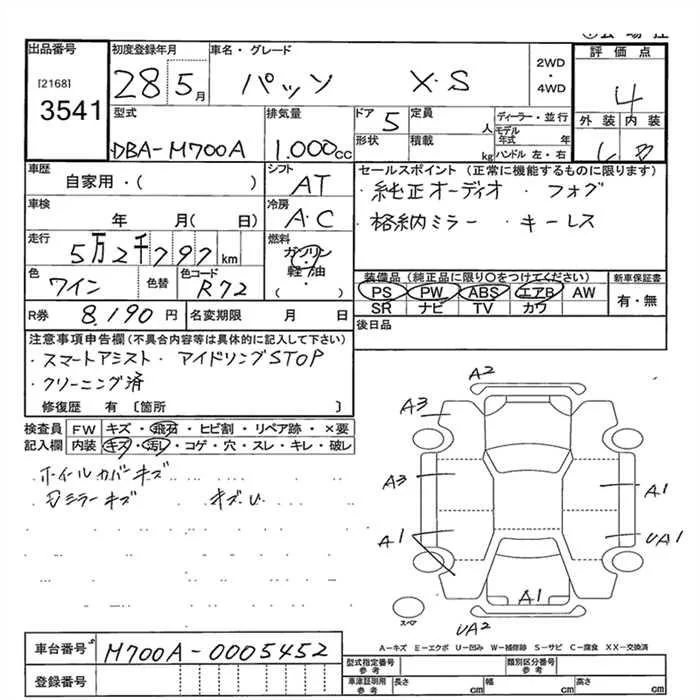 出品番号 初度登録年月 車名・グレード 2WD・4WD 評価点
[2168]
3541
28 5月 パッソ X・S 4
型式 排気量 ドア 5 定員 人 ディーラー・並行 外装 内装
DBA-M700A 1.000cc 形状 積載 kg モデル年式 年 ハンドル 左・右
車歴 シフト セールスポイント(正常に機能するものに限ります)
自家用・( ) AT ・純正オーディオ ・フォグ
車検 冷房 ・格納ミラー ・キーレス
年 月( 日) A・C
走行 燃料
5万2千797km ガソリン・軽油・( )
色 色替 色コード 装備品(純正品に限り○をつけてください) 新車保証書
ワイン R72 PS PW ABS エアB AW 有・無
SR ナビ TV カワ
R券 8,190円 名変期限 月 日 後日品
注意事項申告欄(不具合内容等は具体的に記入して下さい)
・スマートアシスト・アイドリングSTOP
・クリーニング済
修復歴 有〔箇所 〕
検査員 FW キズ・飛石・ヒビ割・リペア跡・×要
記入欄 内装 キズ・汚し・コゲ・穴・スレ・キレ・破レ
ホイールカバーキズ
ミラーキズ
A2
A3
A3
A1
A1
UA1
A1
スペア
UA2
A-キズ E-エクボ U-凹み W-補修跡 S-サビ C-腐食 XX-交換済
車台番号 M700A-0005452
登録番号
型式指定番号 参考 類別区分番号 参考
車庫証明用 参考 長さ cm 幅 cm 高さ cm